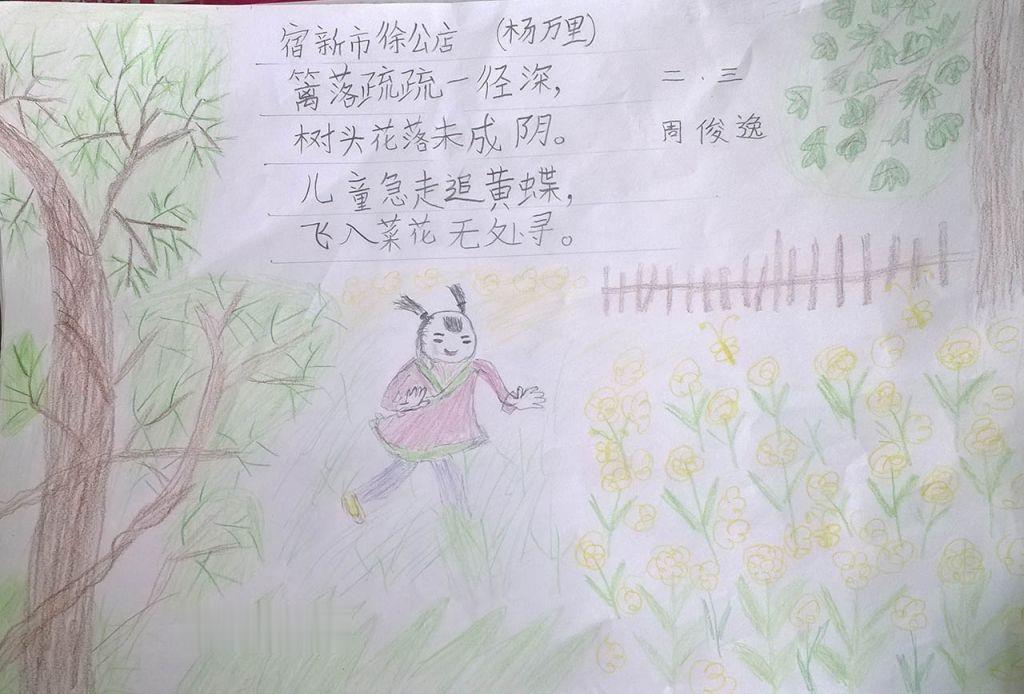 宿新市徐公店 (杨万里)
篱落疏疏一径深，
树头花落未成阴。
儿童急走追黄蝶，
飞入菜花无处寻。
二．三
周俊逸